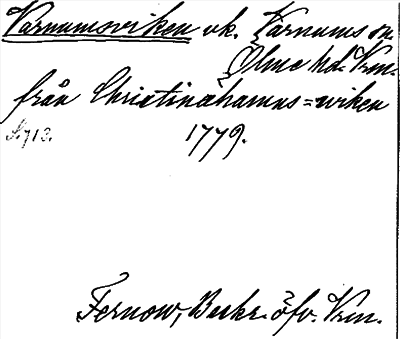 Varnumsviken vk. Varnums sn
Ölme hd. Vrm.
från Christinæhamns=wiken
S. 713. 1779.
Fernow, Beskr. öfv. Vrm.